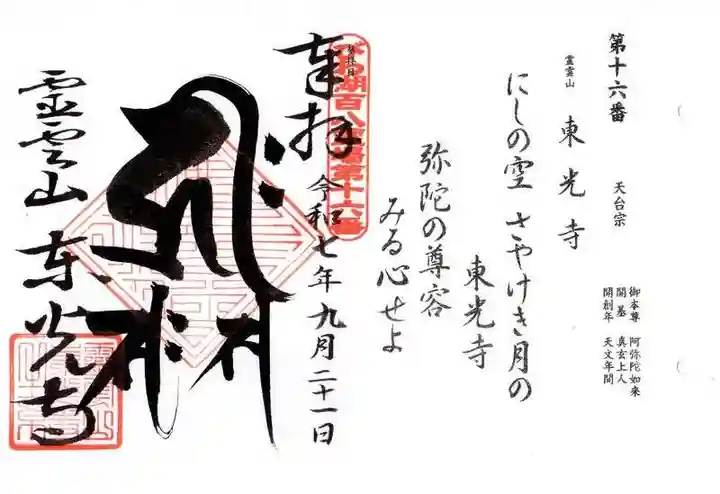 第十六番 天台宗 御本尊 阿弥陀如来
開基 真玄上人
開創年 天文年間
霊雲山 東光寺
にしの空 さやけき月の
東光寺
弥陀の尊容
みる心せよ
びわ湖百八霊場第十六番
奉拝
令和七年九月二十一日
霊雲山 東光寺